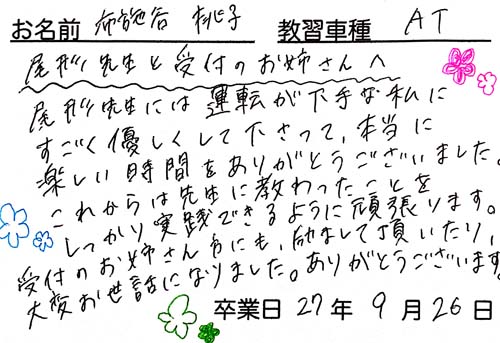 お名前 布施谷 桃子 教習車種 AT
尾形先生と受付のお姉さんへ
尾形先生には運転が下手な私に
すごく優しくして下さって、本当に
楽しい時間をありがとうございました。
これからは先生に教わったことを
しっかり実践できるように頑張ります。
受付のお姉さん方にも、励まして頂いたり、
大変お世話になりました。ありがとうございます。
卒業日 27年 9月 26日